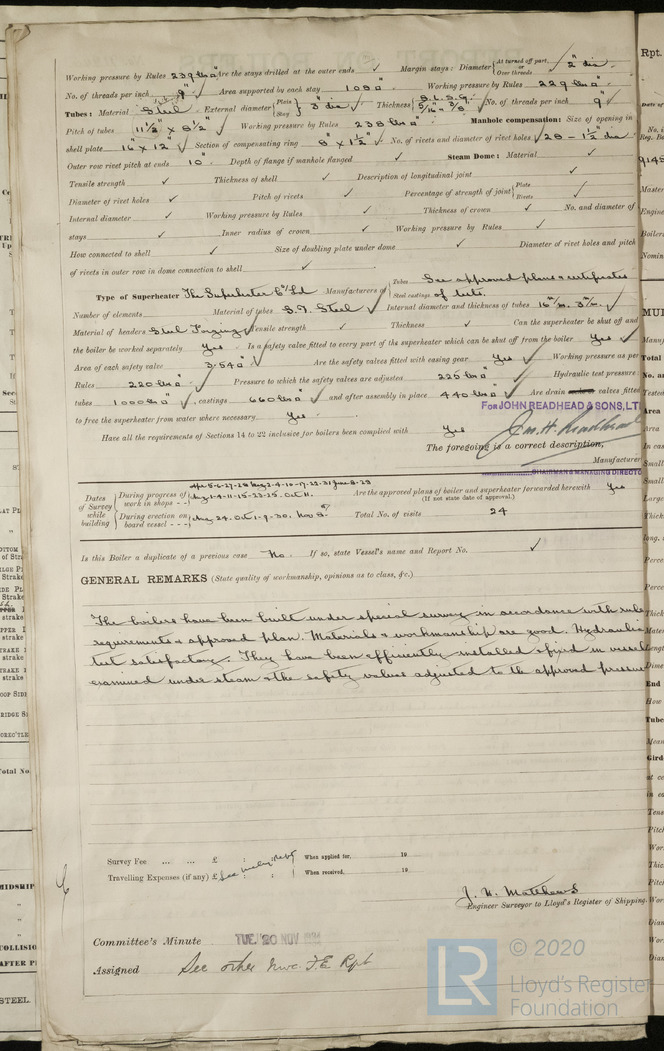 Working pressure by Rules 239 lbs □" Are the stays drilled at the outer ends ✓ Margin stays: Diameter { At turned off part, or Over threads ✓ 2" dia
No. of threads per inch 9" ✓ Area supported by each stay 108 □" Working pressure by Rules 229 lbs □"
Tubes: Material Steel External diameter { Plain Stay } 3" dia ✓ Thickness { 8 L.S.G. 5/16" 3/8" ✓ No. of threads per inch 9" ✓
Pitch of tubes 11½" X 8½" ✓ Working pressure by Rules 238 lbs □" Manhole compensation: Size of opening in
shell plate 16" X 12" ✓ Section of compensating ring 8" X 1½" ✓ No. of rivets and diameter of rivet holes ✓ 28 - 1½" dia
Outer row rivet pitch at ends 10" Depth of flange if manhole flanged ✓ Steam Dome: Material ✓
Tensile strength ✓ Thickness of shell ✓ Description of longitudinal joint ✓
Diameter of rivet holes ✓ Pitch of rivets ✓ Percentage of strength of joint { Plate Rivets ✓
Internal diameter ✓ Working pressure by Rules ✓ Thickness of crown ✓ No. and diameter of
stays ✓ Inner radius of crown ✓ Working pressure by Rules ✓
How connected to shell ✓ Size of doubling plate under dome ✓ Diameter of rivet holes and pitch
of rivets in outer row in dome connection to shell ✓
Type of Superheater The Superheater Co Ltd Manufacturers of { Tubes Steel castings See approved plans & certificates of tests.
Number of elements Material of tubes S.D. Steel ✓ Internal diameter and thickness of tubes 16 m/m. 3 m/m. ✓
Material of headers Steel Forging ✓ Tensile strength ✓ Thickness ✓ Can the superheater be shut off and
the boiler be worked separately Yes Is a safety valve fitted to every part of the superheater which can be shut off from the boiler Yes ✓
Area of each safety valve 3.54 □" ✓ Are the safety valves fitted with easing gear Yes ✓ Working pressure as per
Rules 220 lbs □" ✓ Pressure to which the safety valves are adjusted 225 lbs □" ✓ Hydraulic test pressure:
tubes 1000 lbs □" ✓, castings 660 lbs □" ✓ and after assembly in place 440 lbs □" ✓ Are drain valves fitted
to free the superheater from water where necessary Yes
For JOHN READHEAD & SONS, LT
Have all the requirements of Sections 14 to 22 inclusive for boilers been complied with Yes
Jas. H. Readhead
The foregoing is a correct description,
Manufacturer
CHAIRMAN & MANAGING DIRECTO
Dates of Survey while building
During progress of work in shops - - Apr. 5-6-27-28 May 2-4-10-17-22-31 June 8-29 Aug 1-4-11-15-23-25. Oct 11.
Are the approved plans of boiler and superheater forwarded herewith Yes
(If not state date of approval.)
During erection on board vessel - - - Aug 24. Oct 1-9-30. Nov 8.
Total No. of visits 24
Is this Boiler a duplicate of a previous case No. If so, state Vessel's name and Report No. ✓
GENERAL REMARKS (State quality of workmanship, opinions as to class, &c.)
The boilers have been built under special survey in accordance with rule
requirements & approved plan. Materials & workmanship are good. Hydraulic
test satisfactory. They have been efficiently installed & fixed in vessel
examined under steam & the safety valves adjusted to the approved pressure
Survey Fee ... ... £ : : When applied for, 19
Travelling Expenses (if any) £ : : When received, 19
J. N. Matthews
Engineer Surveyor to Lloyd's Register of Shipping.
Committee's Minute TUE. 20 NOV
Assigned See other Nwc F.E. Rpt
LR © 2020
Lloyd's Register
Foundation